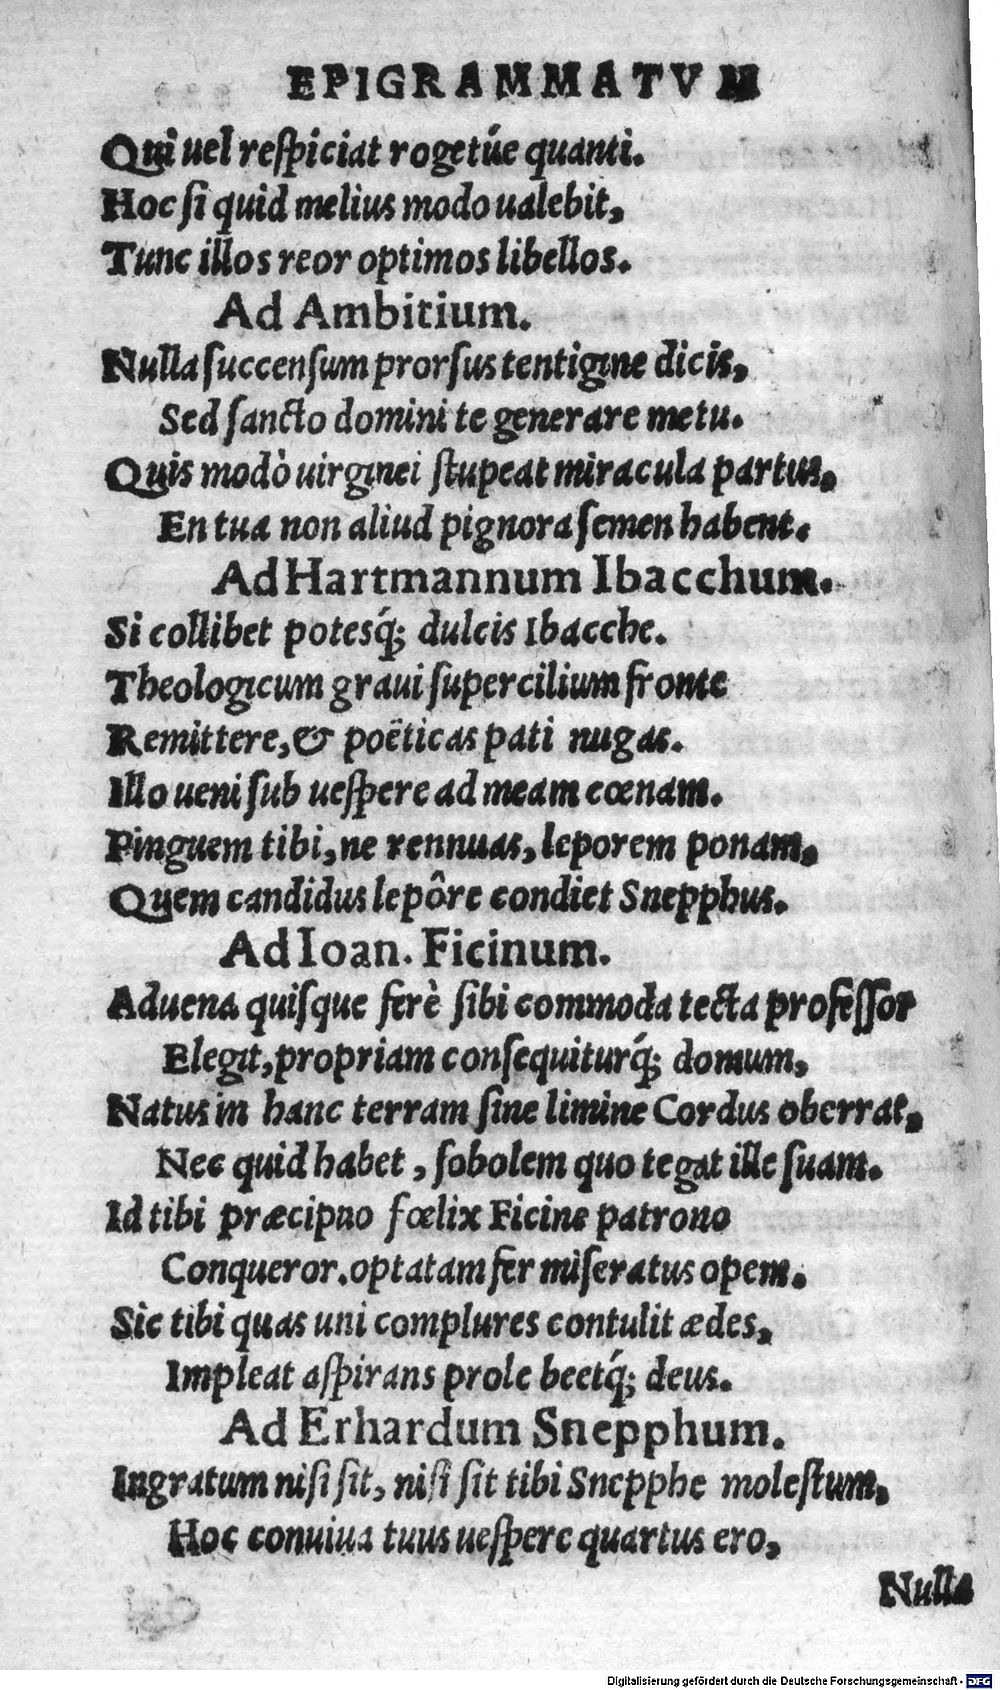 EPIGRAMMATVM
Qui uel reſpiciat rogetúe quanti.
Hoc ſi quid melius modo ualebit,
Tunc illos reor optimos libellos.
Ad Ambitium.
Nulla ſuccenſum prorſus tentigine dicis,
Sed ſancto domini te generare metu.
Quis modò uirginei ſtupeat miracula partus,
En tua non aliud pignora ſemen habent.
Ad Hartmannum Ibacchum.
Si collibet potesq́; dulcis Ibacche.
Theologicum graui ſupercilium fronte
Remittere, & poëticas pati nugas.
Illo ueni ſub ueſpere ad meam cœnam.
Pinguem tibi, ne rennuas, leporem ponam,
Quem candidus lepôre condiet Snepphus.
Ad Ioan. Ficinum.
Aduena quiſque ferè ſibi commoda tecta profeſſor
Elegit, propriam conſequiturq́; domum,
Natus in hanc terram ſine limine Cordus oberrat,
Nec quid habet, ſobolem quo tegat ille ſuam.
Id tibi præcipuo fœlix Ficine patrono
Conqueror. optatam fer miſeratus opem.
Sic tibi quas uni complures contulit ædes,
Impleat aſpirans prole beetq́; deus.
Ad Erhardum Snepphum.
Ingratum niſi ſit, niſi ſit tibi Snepphe moleſtum,
Hoc conuiua tuus ueſpere quartus ero,
Nulla
Digitalisierung gefördert durch die Deutsche Forschungsgemeinschaft - DFG